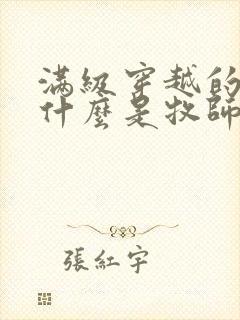 滿級穿越的
什麼是牧師
張紅宇